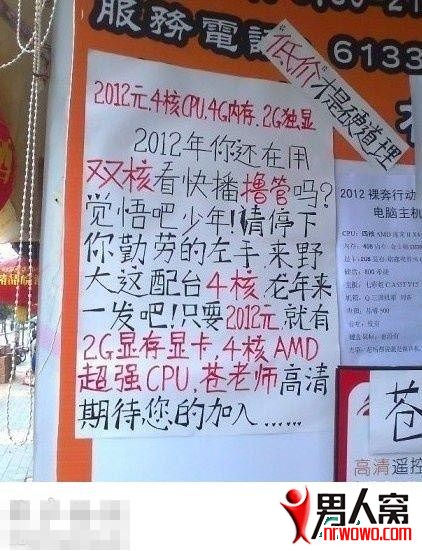 服務電話
6133
低价才是硬道理
2012元,4核CPU,4G内存,2G独显
2012年你还在用
双核看快播撸管吗?
觉悟吧少年!请停下
你勤劳的左手来野
大这配台4核.龙年来
一发吧!只要2012元.就有
2G显存显卡,4核AMD
超强CPU,苍老师高清
期待您的加入......
2012裸奔行动
电脑主机
苍
高清遥控
男人窝
nrwowo.com